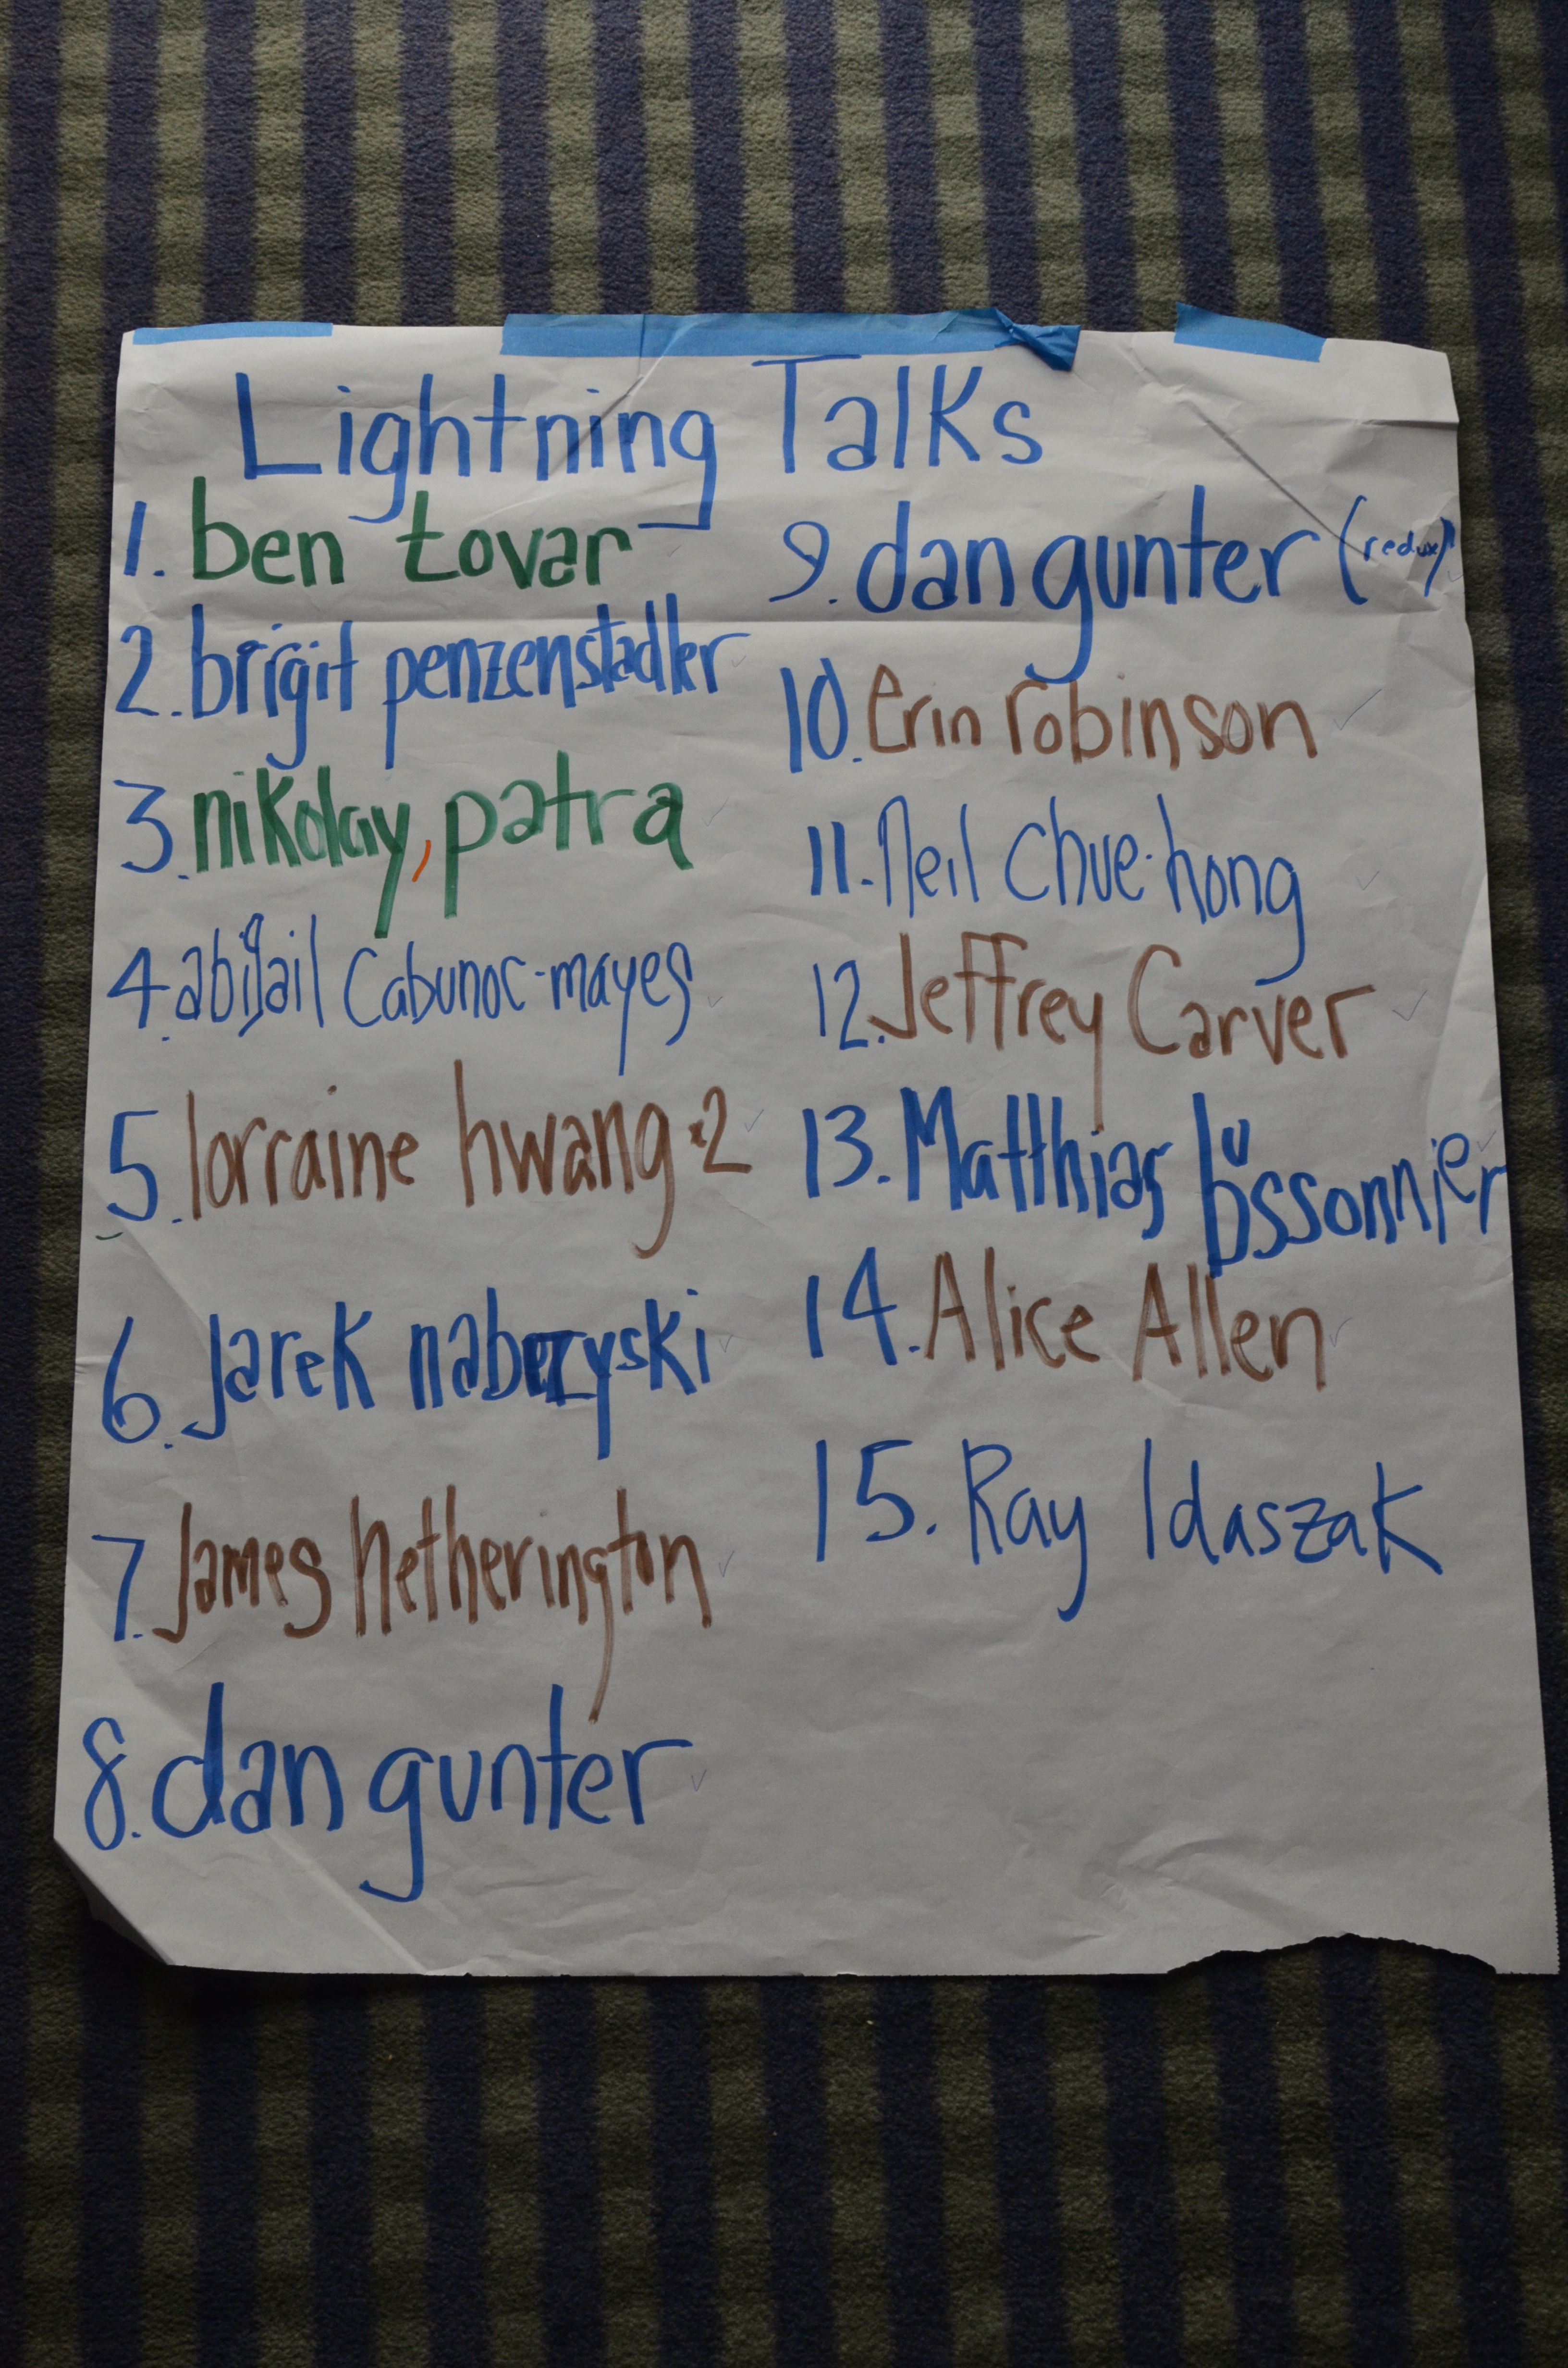 Lightning Talks
1. ben tovar
2. brigit penzenstadler
3. nikolay, patra
4. abigail Cabunoc-mayes
5. lorraine hwang ·2
6. Jarek
7. James hetherington
8. dan gunter
9. dan gunter (redux)
10. Erin robinson
11. Neil Chue-hong
12. Jeffrey Carver
13. Matthias
14. Alice Allen
15. Ray Idaszak